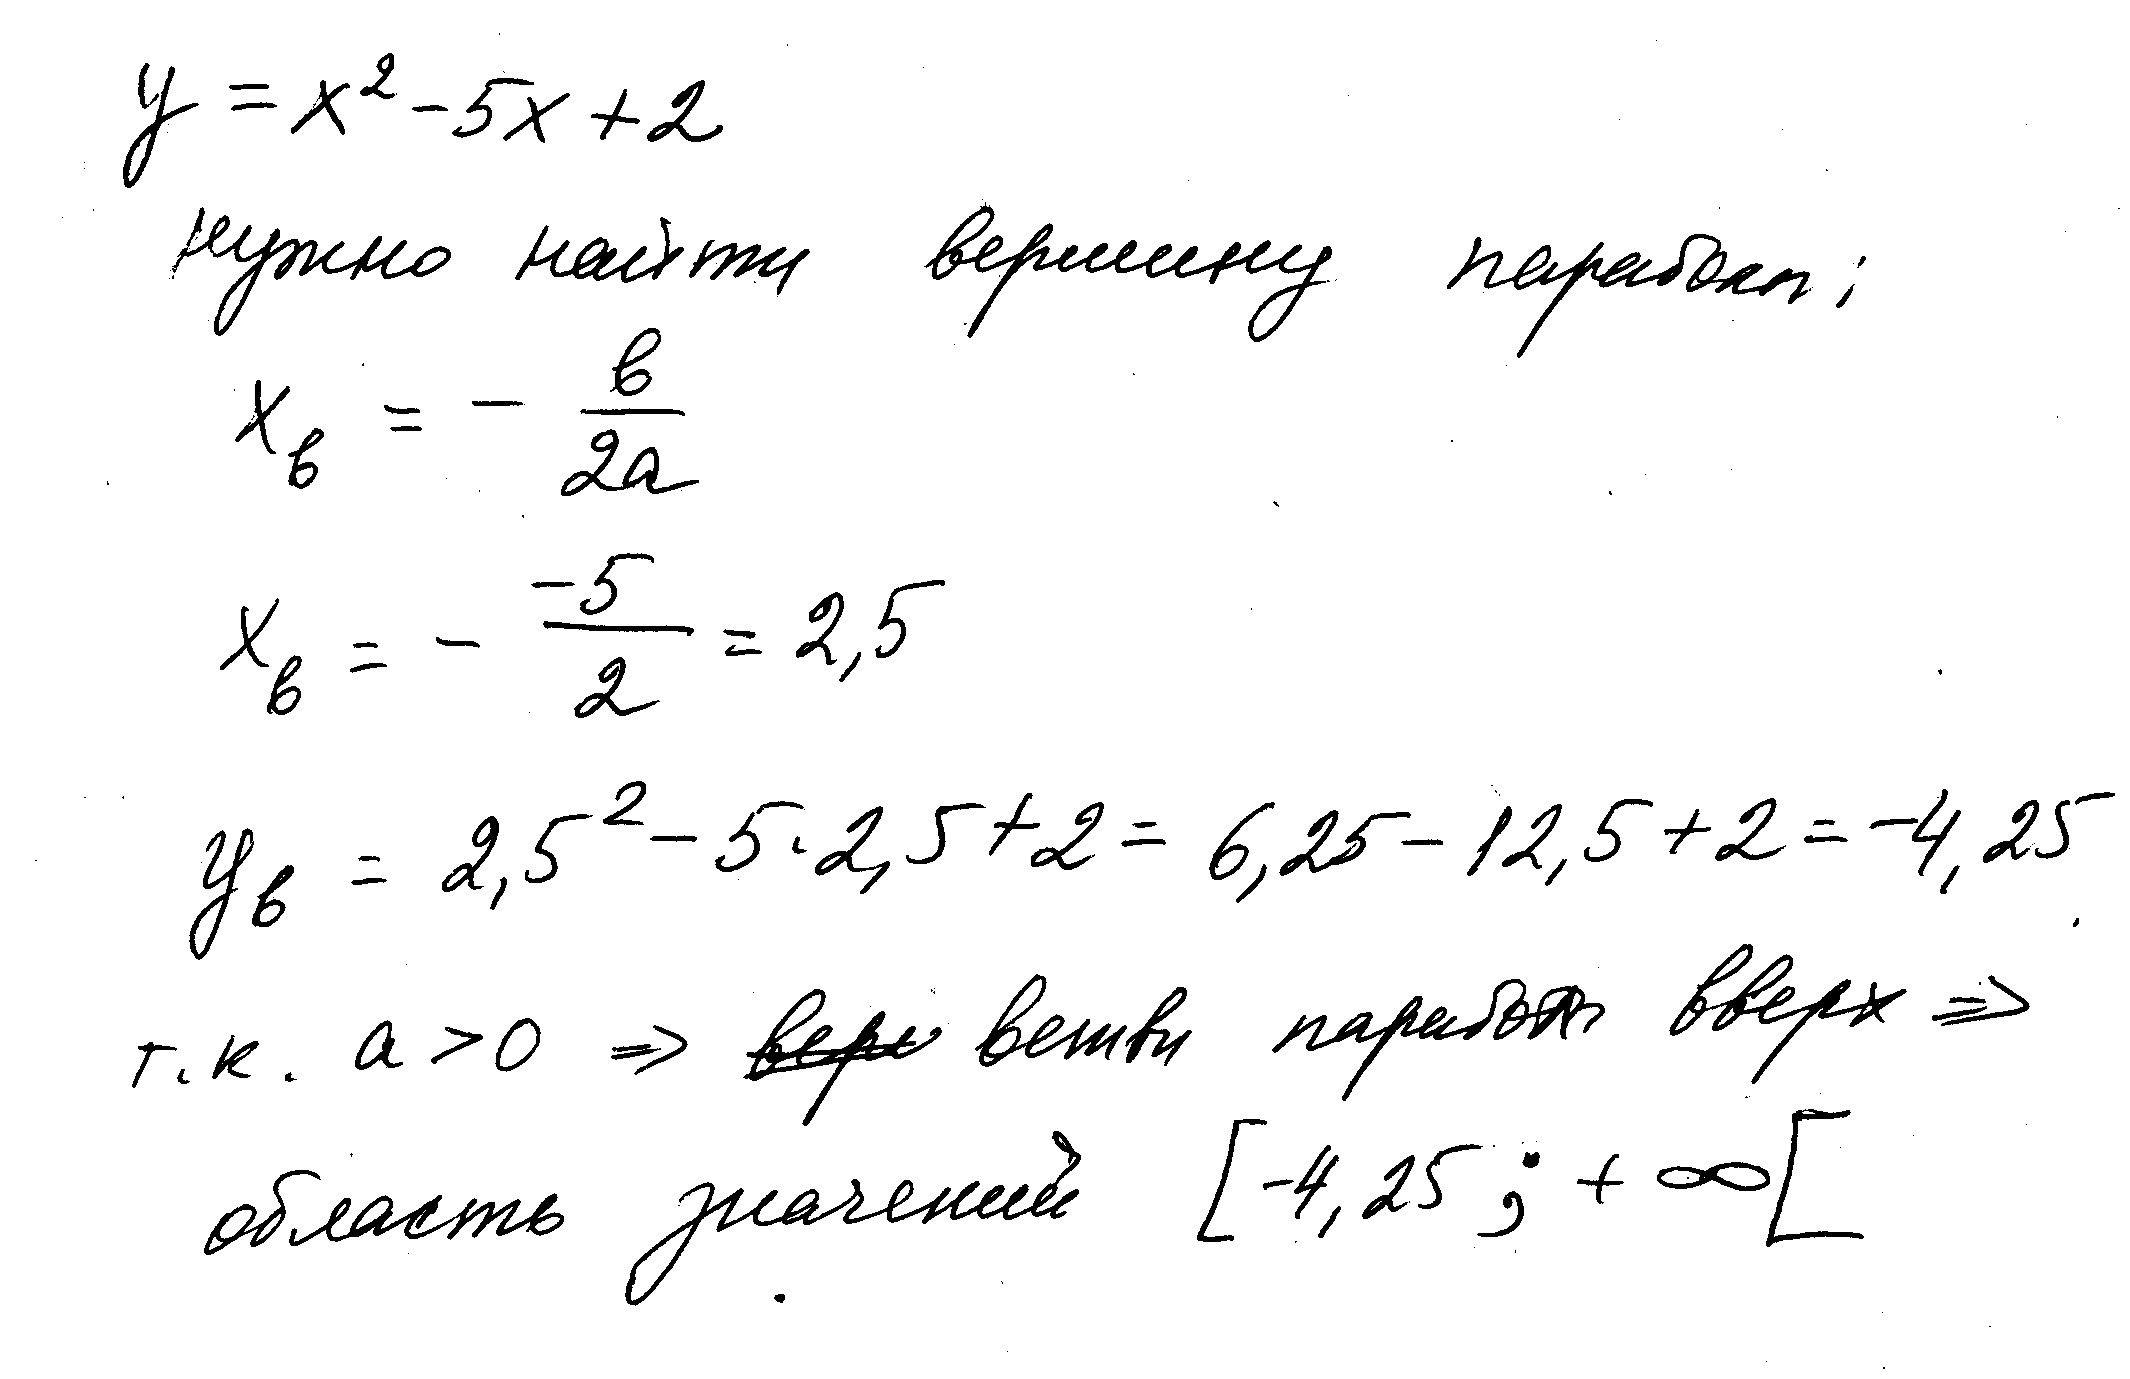 y = x² - 5x + 2
нужно найти вершину парабол;
xв = - в/2a
xв = - -5/2 = 2,5
yв = 2,5² - 5·2,5 + 2 = 6,25 - 12,5 + 2 = -4,25
т.к. a > 0 ⇒ ветви парабол вверх ⇒
область значений [-4,25; +∞[